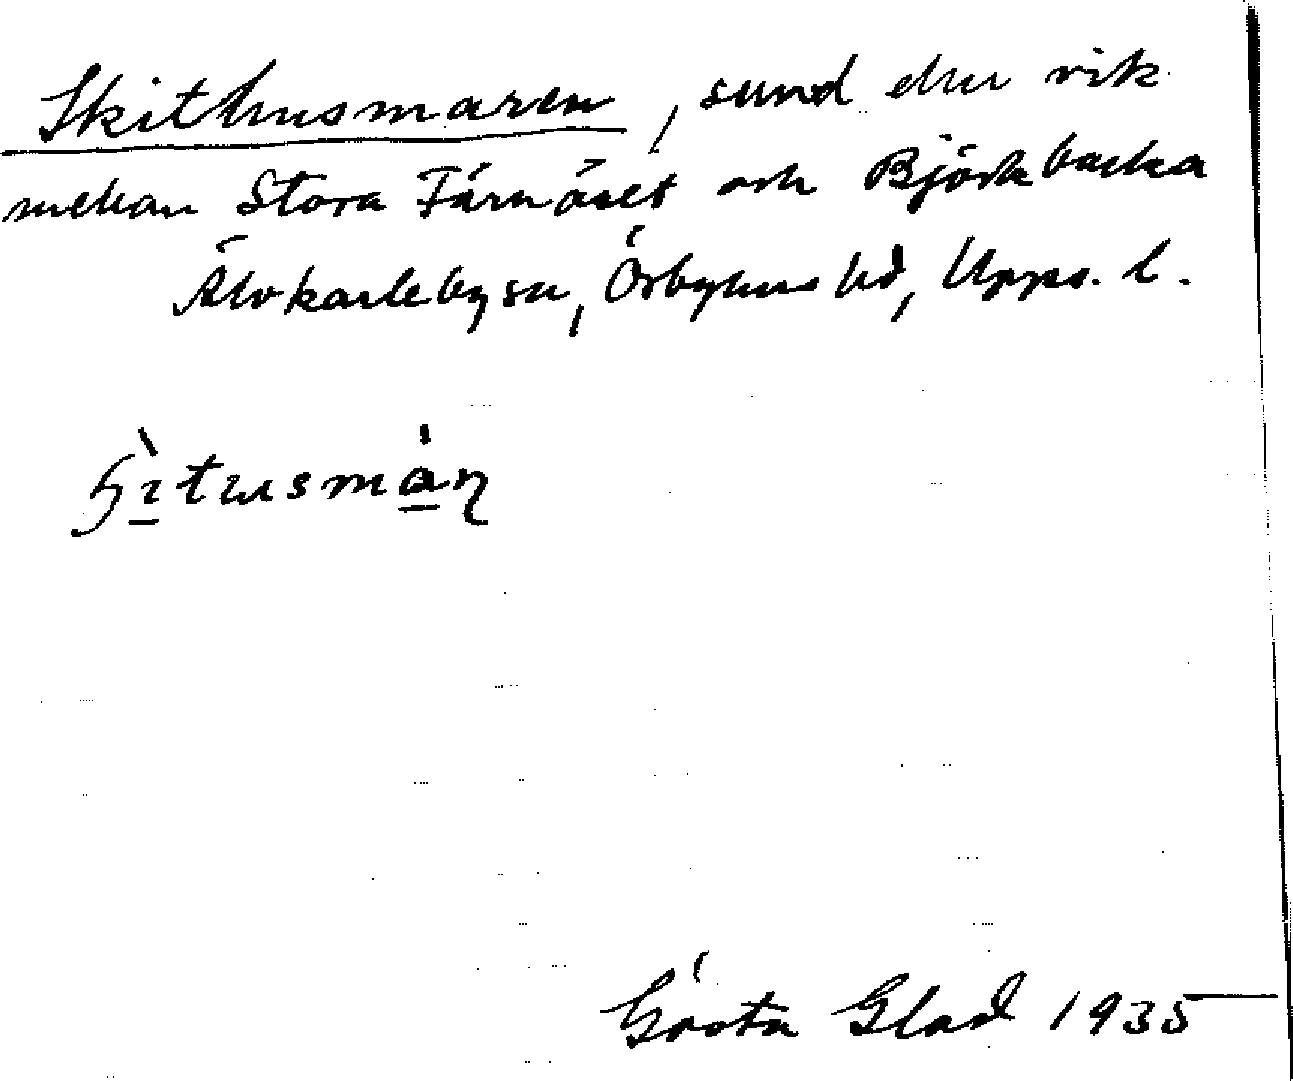 Skithusmaren, sund eller vik
mellan Stora Fårnäset och Björkbacka
Älvkarleby sn, Örbyhus hd, Upps. l.
Gösta Glad 1935